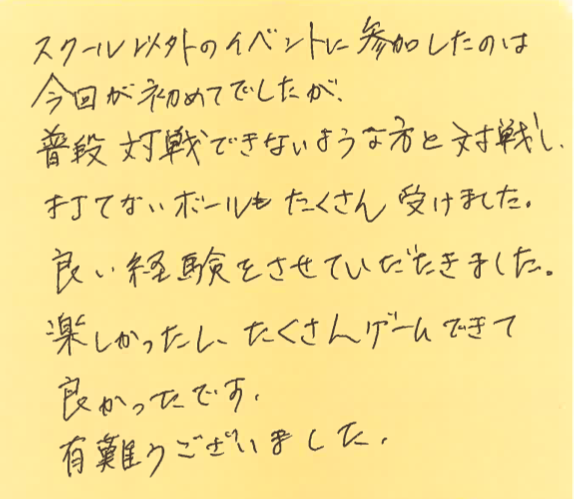 スクール以外のイベントに参加したのは
今回が初めてでしたが、
普段対戦できないような方と対戦し、
打てないボールもたくさん受けました。
良い経験をさせていただきました。
楽しかったし、たくさんゲームできて
良かったです。
有難うございました。